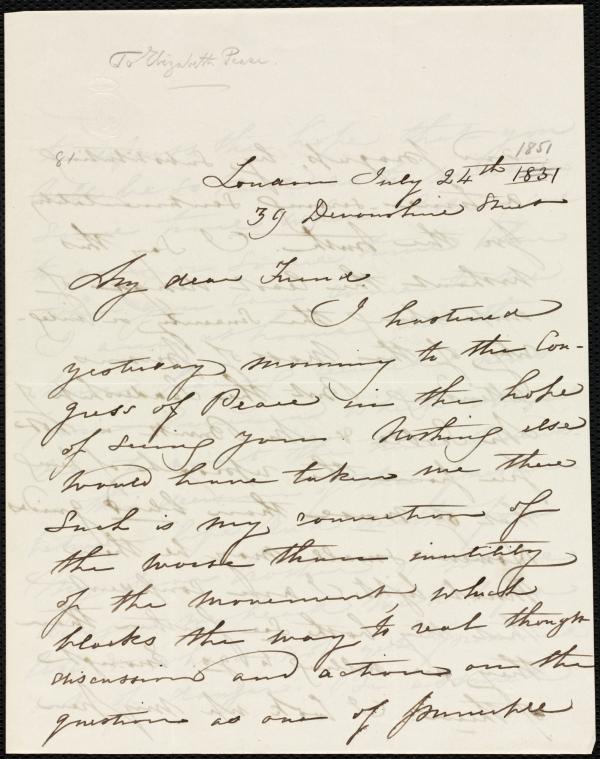 To Elizabeth Pease.
81
1851
London July 24th 1831
39 Devonshire Street
My dear Friend
I hastened
yesterday morning to the Con-
gress of Peace in the hope
of seeing you. Nothing else
would have taken me there
Such is my conviction of
the worse than inutility
of the movement, which
blocks the way to real thought
discussion and action on the
question as one of principle